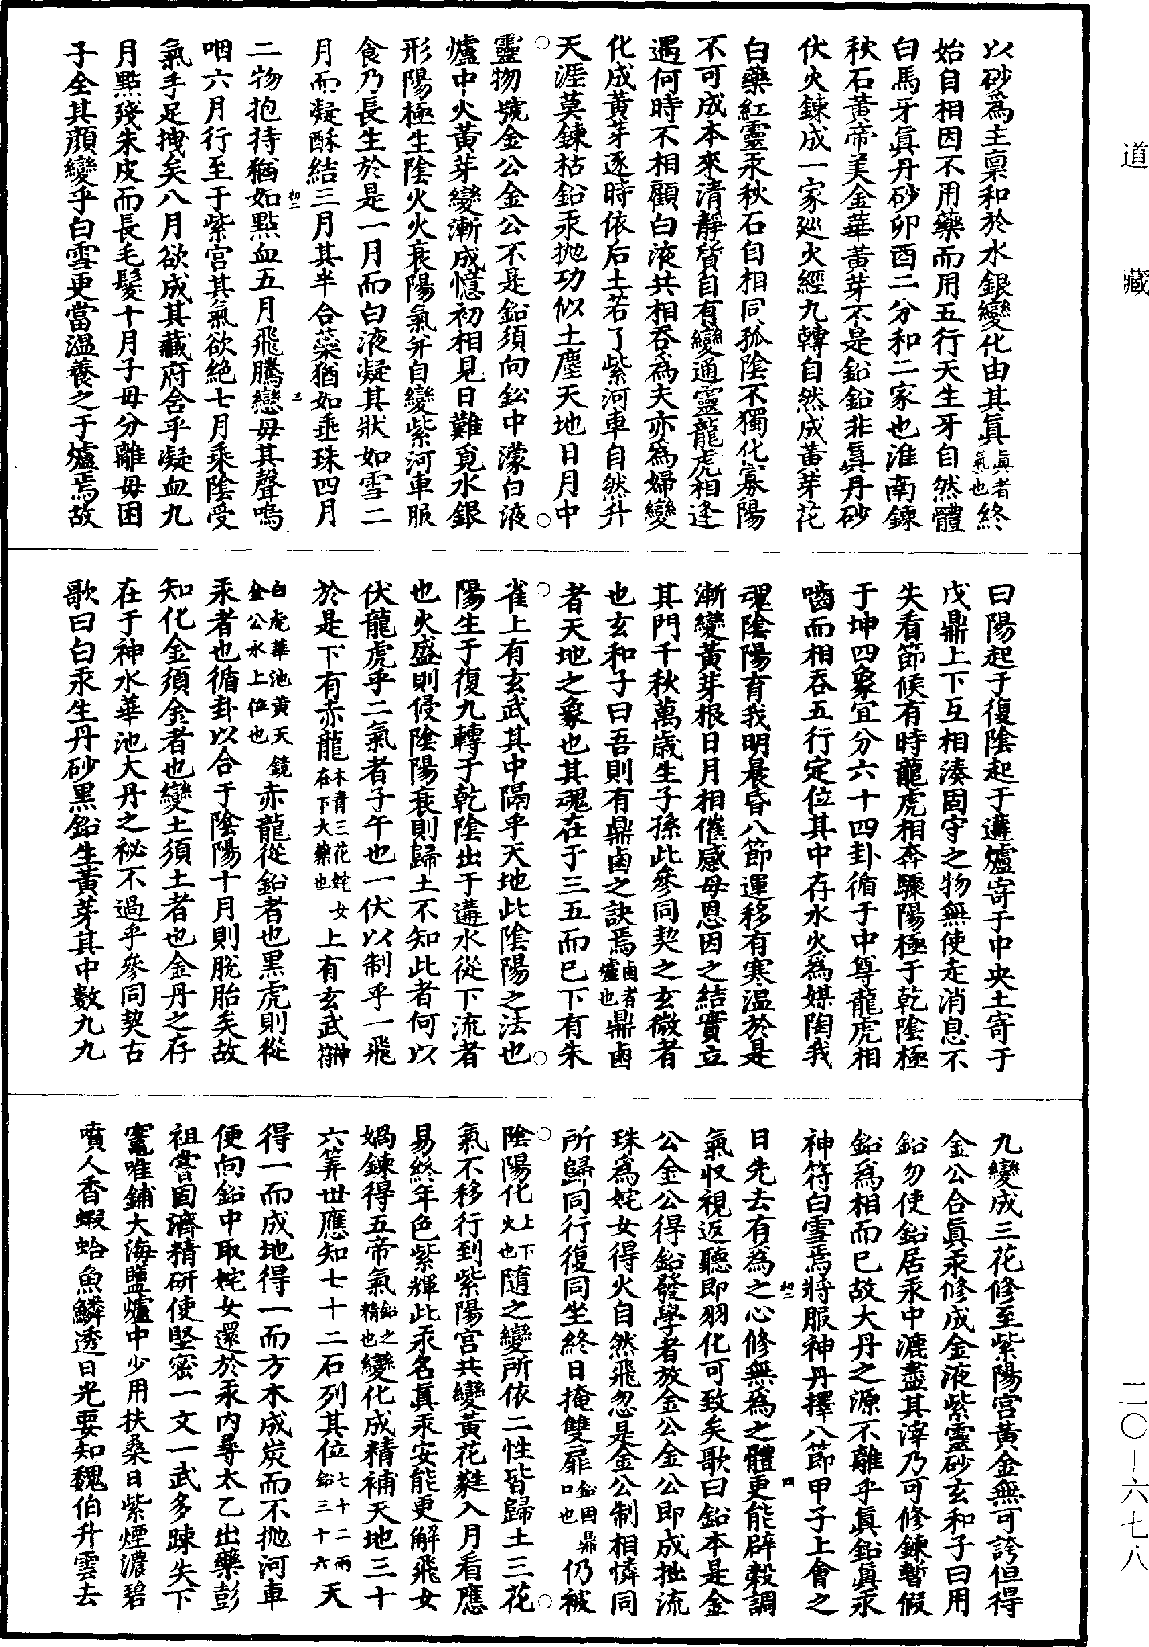 道藏
以砂爲主稟和於水銀變化由其眞眞者氣也終
始自相因不用藥而用五行天生牙自然體
白馬牙眞丹砂卯酉二分和二家也淮南鍊
秋石黃帝美金華黃芽不是鉛鉛非眞丹砂
伏火鍊成一家𢌞火經九轉自然成黃芽花
白藥紅靈汞秋石自相同孤陰不獨化寡陽
不可成本來清靜質自有變通靈龍虎相逢
遇何時不相顧白液共相吞爲夫亦爲婦變
化成黃芽逐時依后土若了紫河車自然升
天涯莫鍊枯鉛汞抛功似土塵天地日月中
靈物號金公金公不是鉛須向鉛中濛白液
爐中火黃芽變漸成憶初相見日難覓水銀
形陽極生陰火火衰陽氣并自變紫河車服
食乃長生於是一月而白液凝其狀如雪二
月而凝酥結三月其半合蘂猶如垂珠四月
二物抱持猶如點血五月飛騰戀母其聲嗚
咽六月行至于紫宮其氣欲絕七月乘陰受
氣手足拽矣八月欲成其藏府含乎凝血九
月點殘朱皮而長毛髮十月子母分離母困
子全其顔變乎白雪更當溫養之于爐焉故
曰陽起于復陰起于遘爐寄于中央土寄于
戊鼎上下互相湊固守之物無使走消息不
失看節候有時龍虎相奔驟陽極于乾陰極
于坤四象宜分六十四卦循于中尊龍虎相
嚙而相吞五行定位其中存水火爲媒陶我
魂陰陽育我明晨昏八節運移有寒溫於是
漸變黃芽根日月相催感母恩因之結實立
其門千秋萬歲生子孫此參同契之玄微者
也玄和子曰吾則有鼎鹵之訣焉鹵者爐也鼎鹵
者天地之象也其魂在于三五而已下有朱
雀上有玄武其中隔乎天地此陰陽之法也
陽生于復九轉于乾陰出于遘水從下流者
也火盛則侵陰陽衰則歸土不知此者何以
伏龍虎乎二氣者子午也一伏以制乎一飛
於是下有赤龍本青三花姹女在下大藥也上有玄武神符
白虎華池黃天鏡金公水上位也赤龍從鉛者也黑虎則從
汞者也循卦以合于陰陽十月則脫胎矣故
知化金須金者也變土須土者也金丹之存
在于神水華池大丹之祕不過乎參同契古
歌曰白汞生丹砂黑鉛生黃芽其中數九九
九變成三花修至紫陽宮黃金無可誇但得
金公合眞汞修成金液紫靈砂玄和子曰用
鉛勿使鉛居汞中漉盡其滓乃可修鍊暫假
鉛爲相而已故大丹之源不離乎眞鉛眞汞
神符白雪焉將服神丹擇八節甲子上會之
日先去有爲之心修無爲之體更能辟穀調
氣収視返聽即羽化可致矣歌曰鉛本是金
公金公得鉛發學者放金公金公即成拙流
珠爲姹女得火自然飛忽是金公制相憐同
所歸同行復同坐終日掩雙扉鉛因鼎口也仍被
陰陽化上下火也隨之變所依二性皆歸土三花
氣不移行到紫陽宮共變黃花蕤入月看應
易終年色紫輝此汞名眞汞安能更解飛女
媧鍊得五帝氣鉛之精也變化成精補天地三十
六筭世應知七十二石列其位七十二兩鉛三十六天
得一而成地得一而方木成炭而不抛河車
便向鉛中取姹女還於汞內尋太乙出藥彭
祖嘗固濟精研使堅密一文一武多踈失下
竈唯鋪大海鹽爐中少用扶桑日紫煙濃碧
噴人香蝦蛤魚鱗透日光要知魏伯升雲去
二〇－六七八